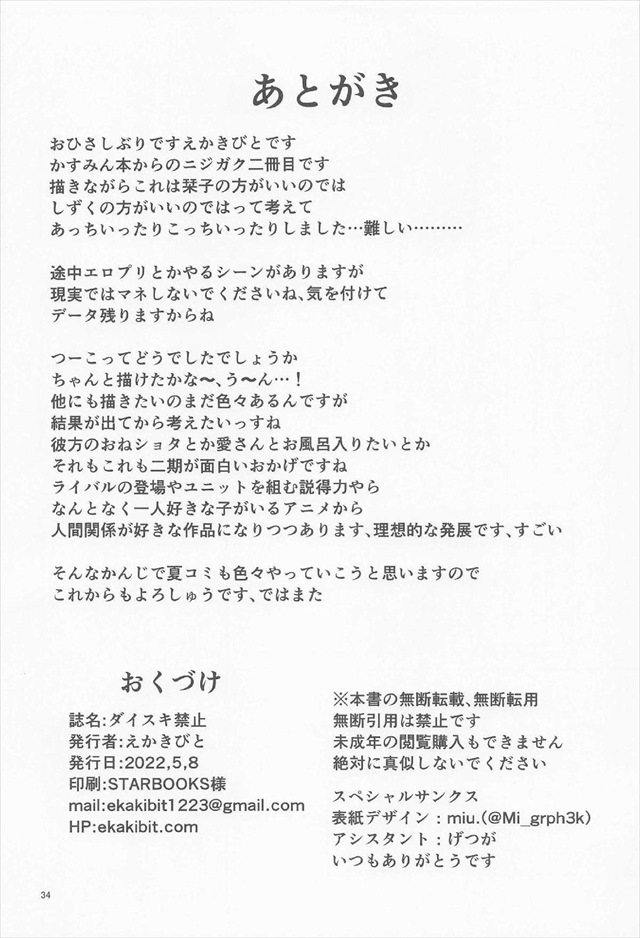 あとがき
おひさしぶりですえかきびとです
かすみん本からのニジガク二冊目です
描きながらこれは栞子の方がいいのでは
しずくの方がいいのではって考えて
あっちいったりこっちいったりしました…難しい………
途中エロプリとかやるシーンがありますが
現実ではマネしないでくださいね、気を付けて
データ残りますからね
つーこってどうでしたでしょうか
ちゃんと描けたかな〜、う〜ん…！
他にも描きたいのまだ色々あるんですが
結果が出てから考えたいっすね
彼方のおねショタとか愛さんとお風呂入りたいとか
それもこれも二期が面白いおかげですね
ライバルの登場やユニットを組む説得力やら
なんとなく一人好きな子がいるアニメから
人間関係が好きな作品になりつつあります、理想的な発展です、すごい
そんなかんじで夏コミも色々やっていこうと思いますので
これからもよろしゅうです、ではまた
おくづけ
誌名:ダイスキ禁止
発行者:えかきびと
発行日:2022,5,8
印刷:STARBOOKS様
mail:ekakibit1223@gmail.com
HP:ekakibit.com
※本書の無断転載、無断転用
無断引用は禁止です
未成年の閲覧購入もできません
絶対に真似しないでください
スペシャルサンクス
表紙デザイン：miu.(@Mi_grph3k)
アシスタント：げつが
いつもありがとうです
34